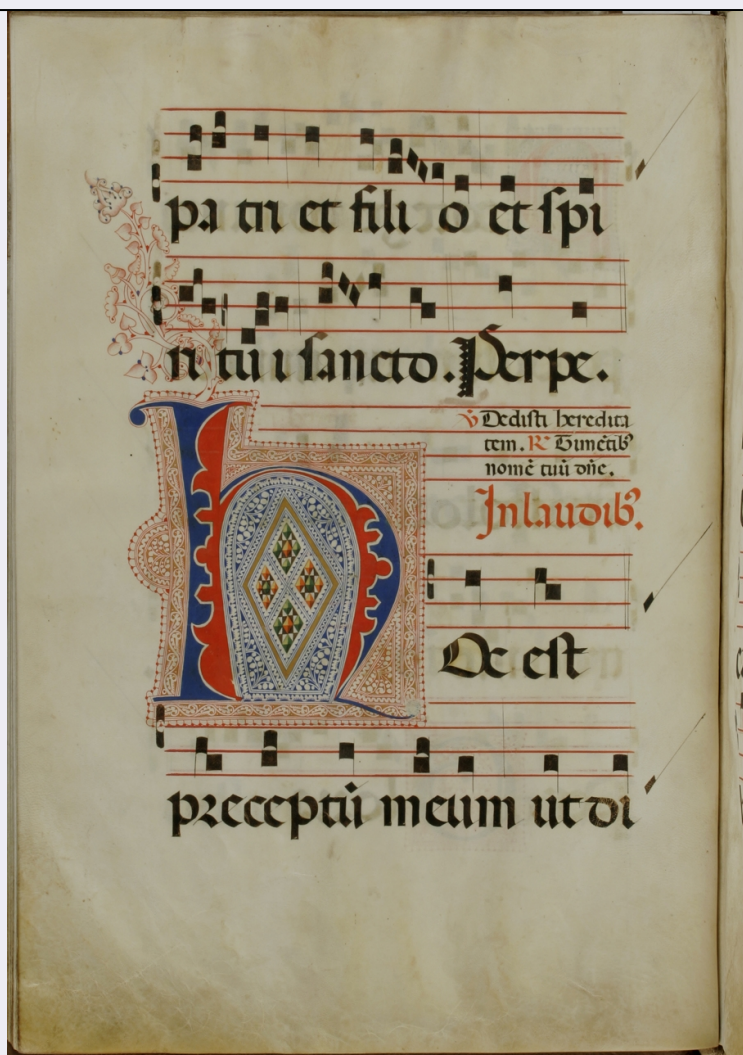 pa tri et fili o et spi
ri tū i sancto. Perpe.
℣ Dedisti heredita
tem. R Timētib⁹
nomē tuū dn̄e.
In laudib⁹.
hOc est
preceptū meum ut di